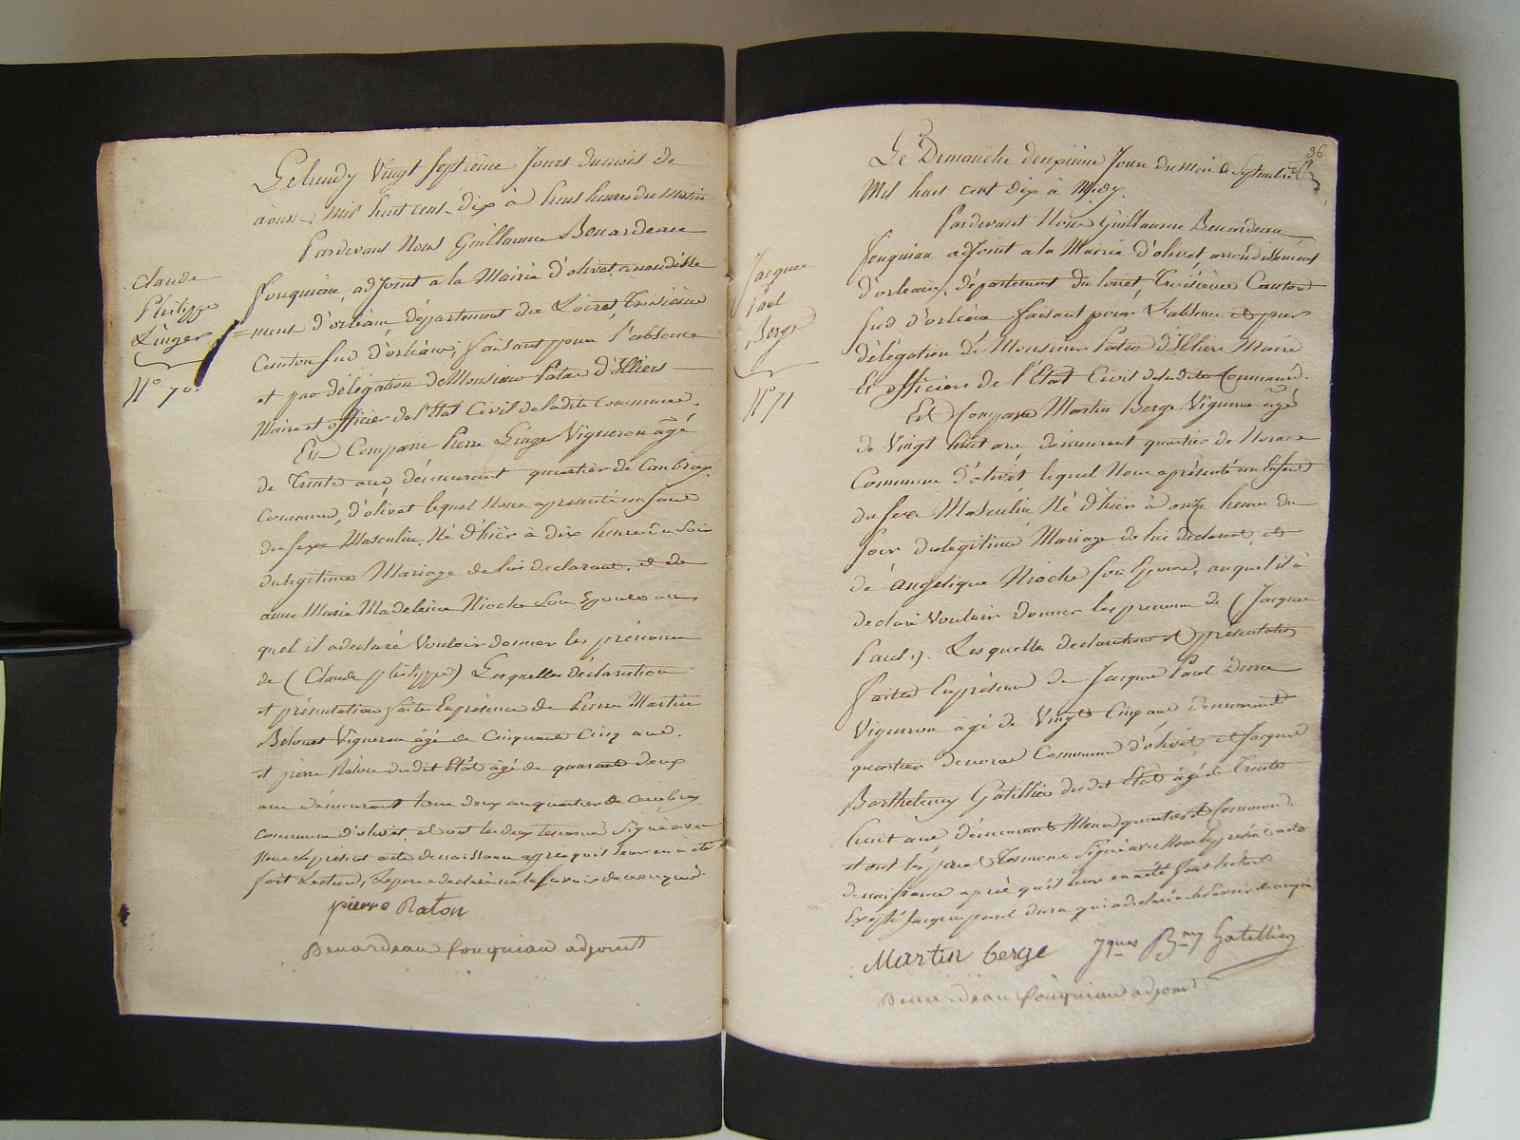 Le lundy Vingt Septieme Jours du mois de
aoust Mil huit cent dix à huit heures du Matin
Pardevant Nous Guillaume Benardeau
fouquiau, adjoint a la Mairie d'olivet, arrondisse
ment d'orleans, département du Loiret Troisieme
Canton sud d'orléans, faisant pour l'absence
et par délégation de Monsieur Patas d'Illiers
Maire et officier de l'Etat Civil de ladite commune.
Est Comparu Pierre Linger Vigneron âgé
de Trente ans démeurant quartier de Coubray
commune d'olivet lequel Nous a presenté un Enfant
du sexe Masculin, Né d'hier à dix heures du Soir
du legitime Mariage de lui declarant, et de
anne Marie Madeleine Rioche Son Epouse au
quel il a declaré Vouloir donner les prénoms
de (Claude philippe) Lesquelles déclaration
et présentation faite En présence de Pierre Martin
Vigneron âgé de Cinquante Cinq ans.
et pierre Raton dudit Etât âgé de quarante deux
ans démeurant tous deux au quartier de Coubray
commune d'olivet et ont les deux temoins Signé avec
Nous le présent acte de naissance apres qu'il leur en a été
fait Lecture, Le pere a declaré ne le savoir de ce enquis.
pierre Raton
Benardeau fouquiau adjoint
claude
Philippe
Linger
N° 70.
36
Le Dimanche deuxieme Jour du Mois de Septembre
Mil huit cent dix à Midy.
Pardevant Nous Guillaume Benardeau
fouquiau adjoint a la Mairie d'olivet arrondissement
d'orleans, département du loiret, Troisième Canton
sud d'orléans faisant pour l'absence et par
délégation de Monsieur Patas d'Illiers Maire
et officier de l'Etat Civil de ladite Commune.
Est Comparu Martin Berge Vigneron agé
de Vingt huit ans demeurant quartier de
Commune d'olivet lequel Nous a présenté un Enfant
du sexe Masculin Né d'hier à onze heures du
soir du legitime Mariage de lui declarant, et
de angelique Rioche son Epouse, auquel il à
declaré Vouloir donner les prenoms de (Jacques
Paul). Lesquelles declaration et présentation
faites En présence de Jacques Paul
Vigneron âgé de Vingt Cinq ans demeurant
quartier Commune d'olivet, et Jacques
Barthelemy Gatellier dudit Etat âgé de Trente
huit ans démeurant Meme quartier et Commune
et ont les pere et Temoins Signé avec Nous le présent acte
de naissance après qu'il leur en a été fait lecture
Excepté Jacques paul qui a declaré ne le savoir de ce enquis
Martin berge Jques Bmy Gatellier
Benardeau fouquiau adjoint
Jacques
Paul
Berge
N° 71